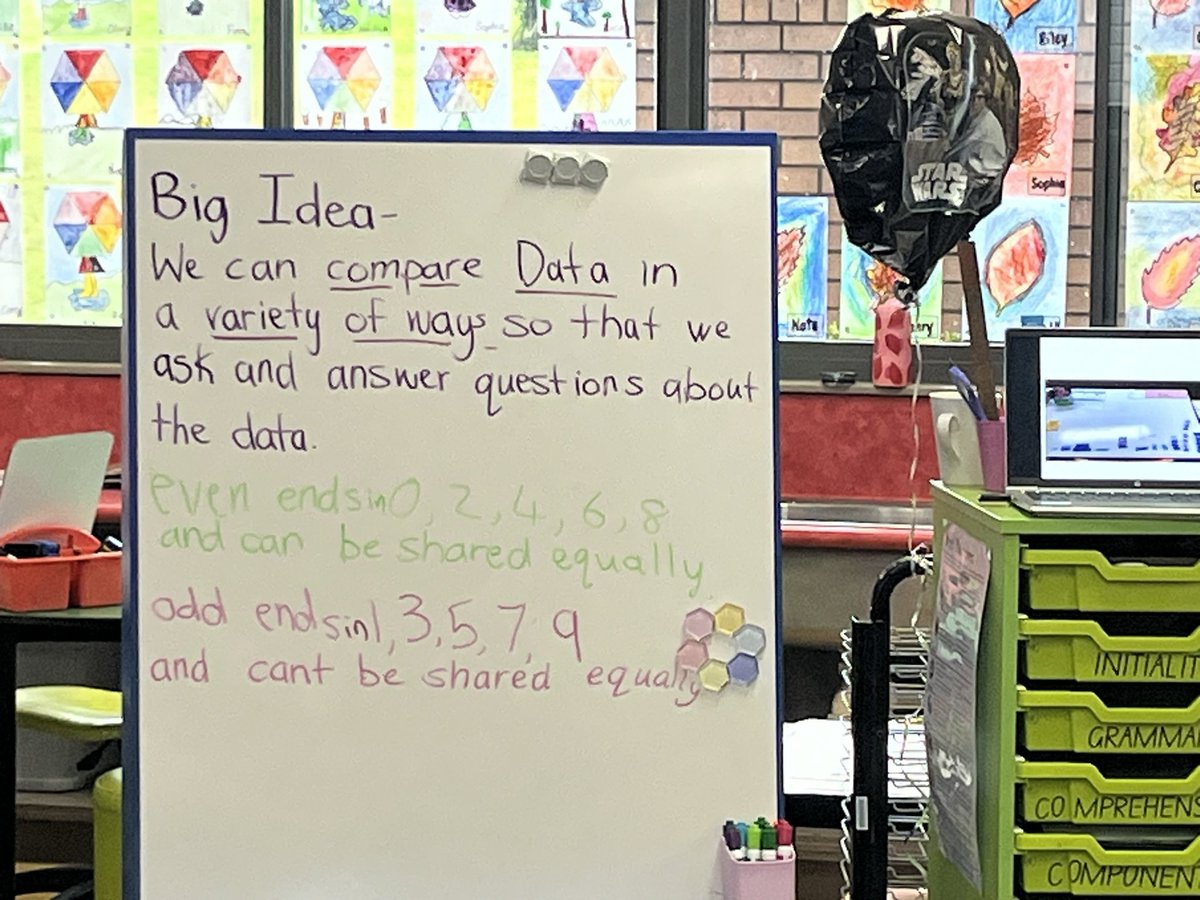 Big Idea-
We can compare Data in
a variety of ways so that we
ask and answer questions about
the data.
even ends in 0, 2, 4, 6, 8
and can be shared equally
odd ends in 1, 3, 5, 7, 9
and cant be shared equally
STAR
WARS
Riley
Sophie
Nate
INITIALIT
GRAMMA
COMPREHENS
COMPONENT